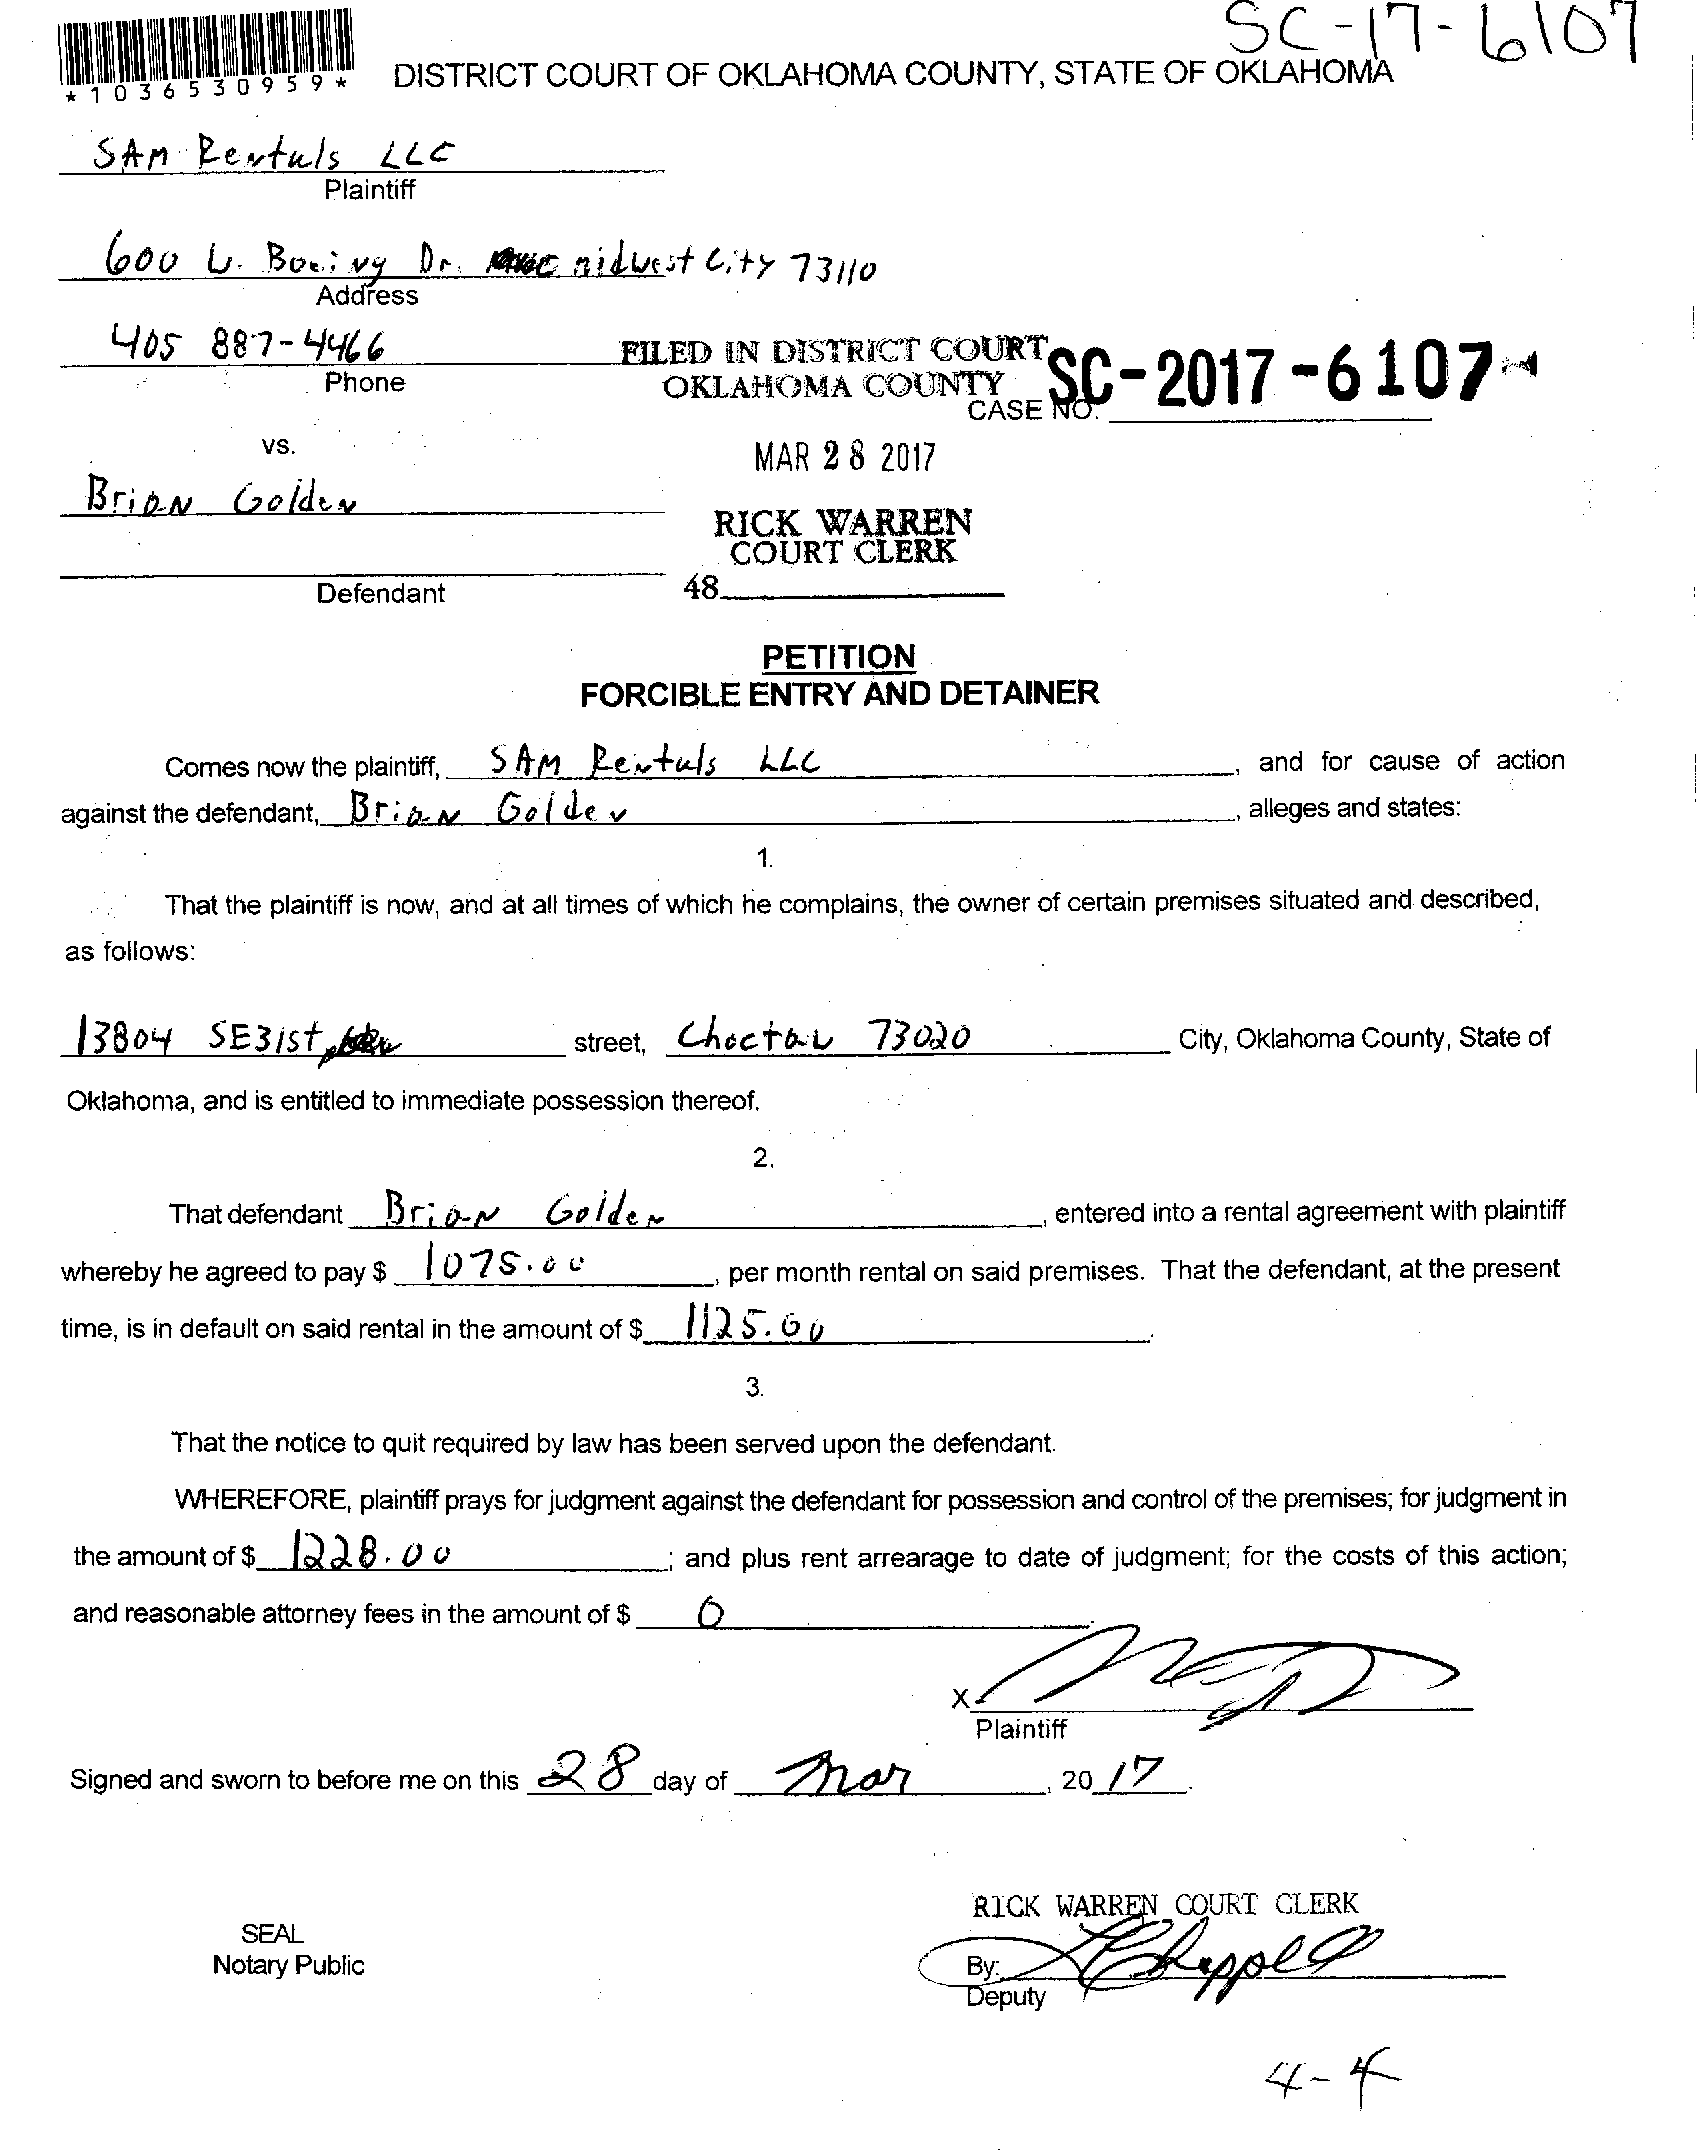 SC-17-6107
*1036530959*
DISTRICT COURT OF OKLAHOMA COUNTY, STATE OF OKLAHOMA
SAM Rentals LLC
Plaintiff
600 W. Boeing Dr. midwest City 73110
Address
405 887-4466
Phone
FILED IN DISTRICT COURT
OKLAHOMA COUNTY
CASE NO. SC-2017-6107
vs.
MAR 28 2017
Brian Golden
RICK WARREN
COURT CLERK
Defendant
48
PETITION
FORCIBLE ENTRY AND DETAINER
Comes now the plaintiff, SAM Rentals LLC, and for cause of action
against the defendant, Brian Golden, alleges and states:
1.
That the plaintiff is now, and at all times of which he complains, the owner of certain premises situated and described,
as follows:
13804 SE31st street, Choctaw 73020 City, Oklahoma County, State of
Oklahoma, and is entitled to immediate possession thereof.
2.
That defendant Brian Golden, entered into a rental agreement with plaintiff
whereby he agreed to pay $ 1075.00, per month rental on said premises. That the defendant, at the present
time, is in default on said rental in the amount of $ 1125.00.
3.
That the notice to quit required by law has been served upon the defendant.
WHEREFORE, plaintiff prays for judgment against the defendant for possession and control of the premises; for judgment in
the amount of $ 1228.00; and plus rent arrearage to date of judgment; for the costs of this action;
and reasonable attorney fees in the amount of $ 0.
X
Plaintiff
Signed and sworn to before me on this 28 day of Mar, 20 17.
RICK WARREN COURT CLERK
SEAL
Notary Public
By:
Deputy
4-4